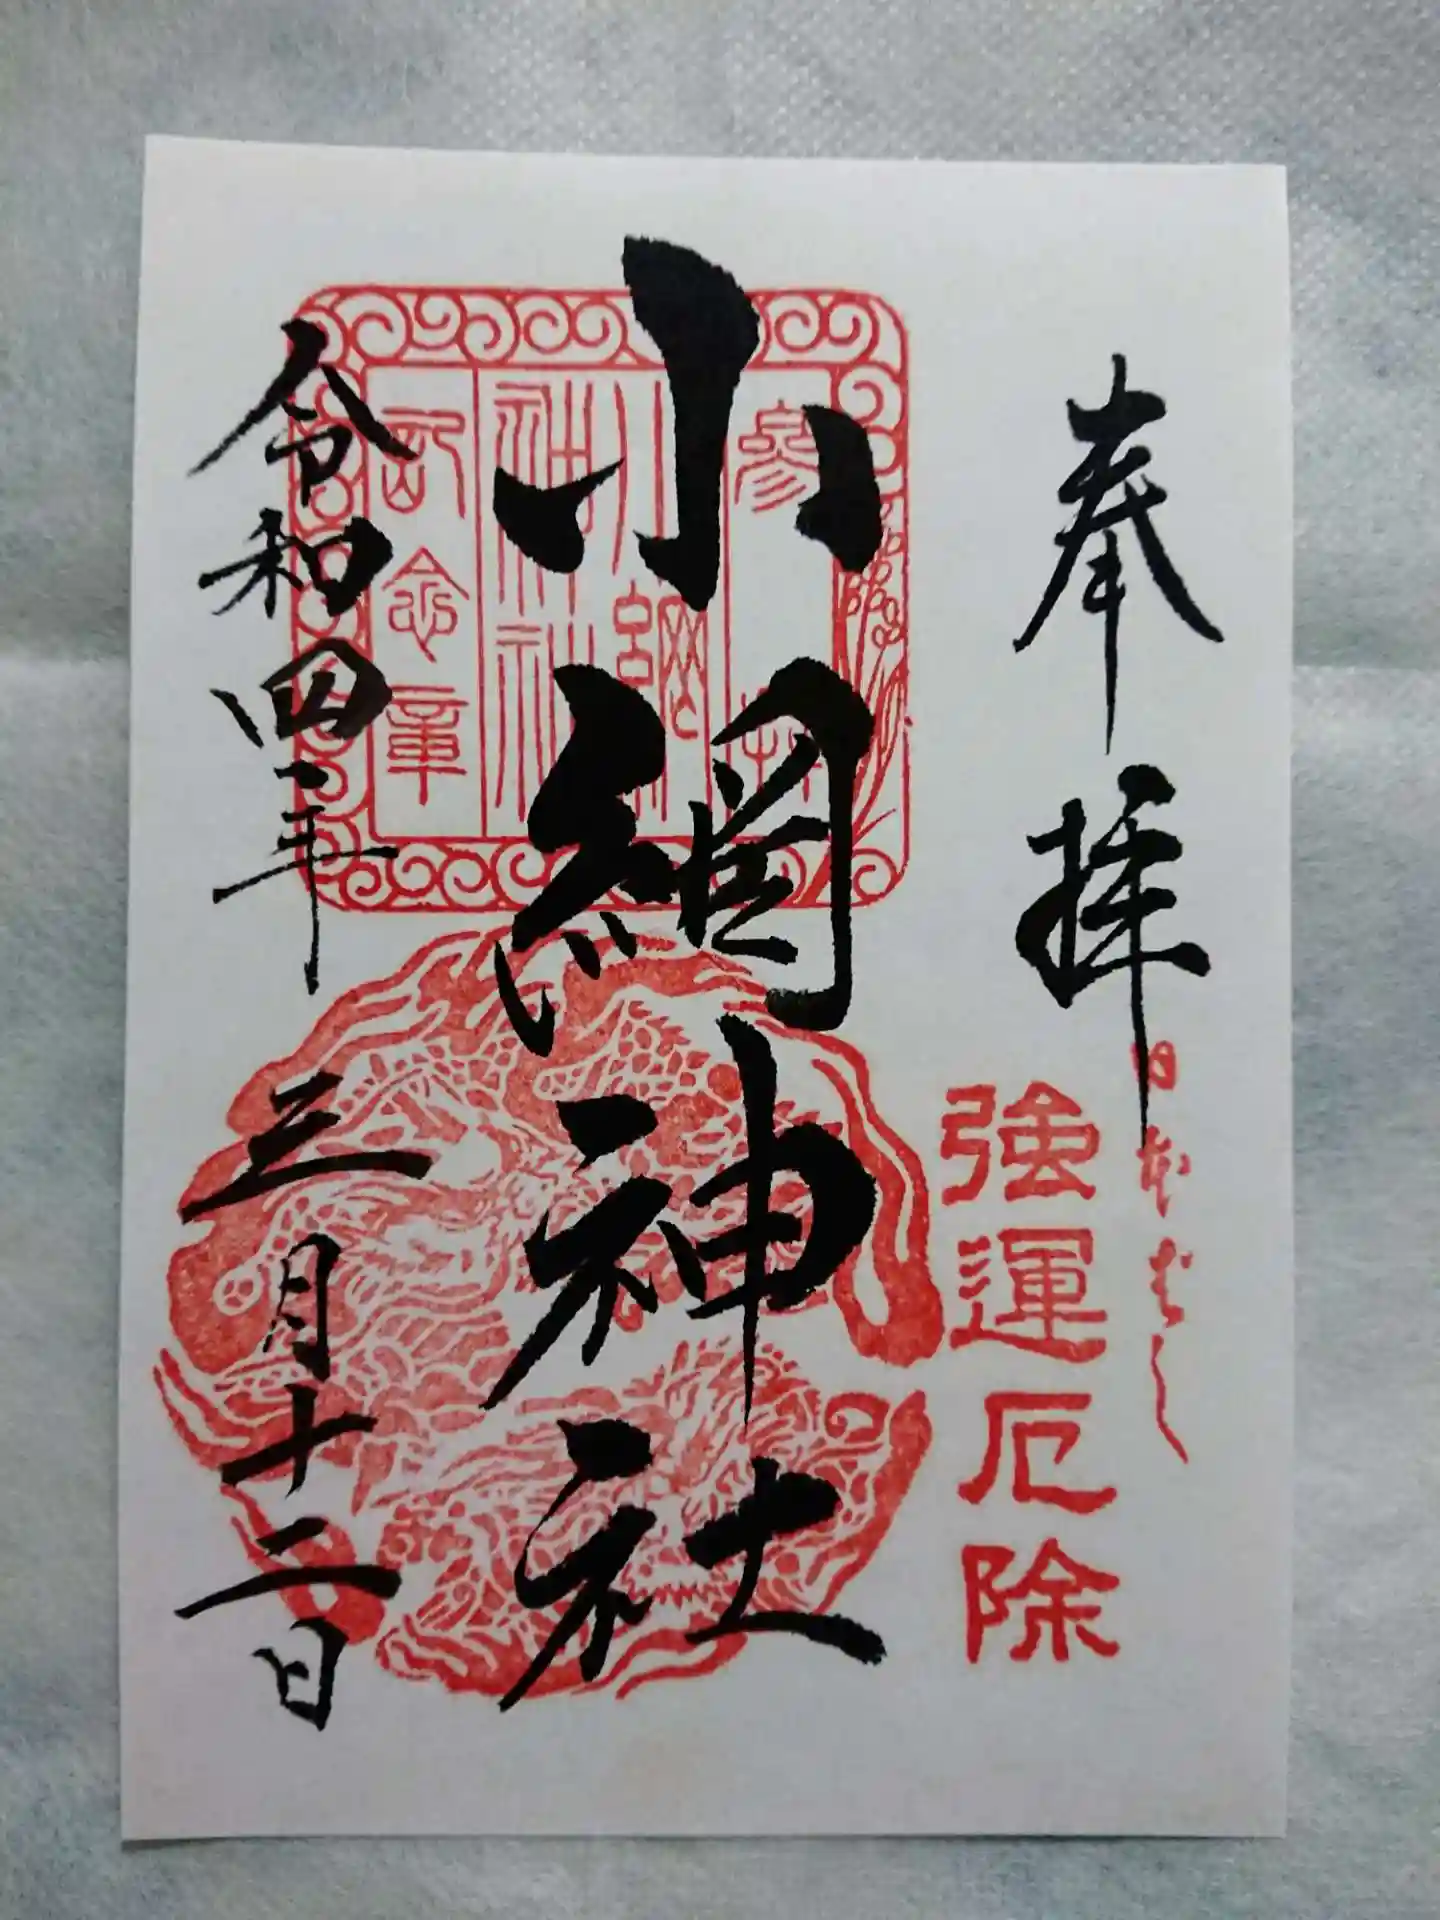 奉拝
日本ばし
強運厄除
小網神社
参拝
小網
神社
記念章
令和四年
三月十二日